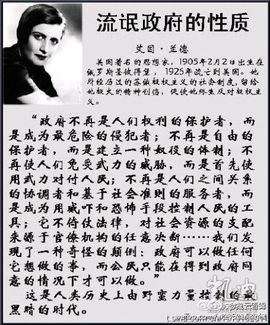 流氓政府的性质
艾因·兰德
美国著名的思想家，1905年2月2日出生在
俄罗斯圣彼得堡，1925年流亡到美国。她
所经历过的苏俄极权主义的社会制度，留给
她极大的精神创伤，促使她终生反对极权主
义。
“政府不再是人们权利的保护者，而
是成为最危险的侵犯者；不再是自由的
保护者，而是建立一种奴役的体制；不
再使人们免受武力的威胁，而是首先使
用武力对付人民；不再是人们之间关系
的协调者和基于社会准则的服务者，而
是成为用威吓和恐怖手段控制人民的工
具；它不待仗法律，对社会资源的支配
来源于官僚机构的任意决断……我们发
现了一种奇怪的颠倒：政府可以做任何
它想做的事，而公民只能在得到政府同
意的情况下才可以做。”
这是人类历史上由野蛮力量控制的最
黑暗的时代。